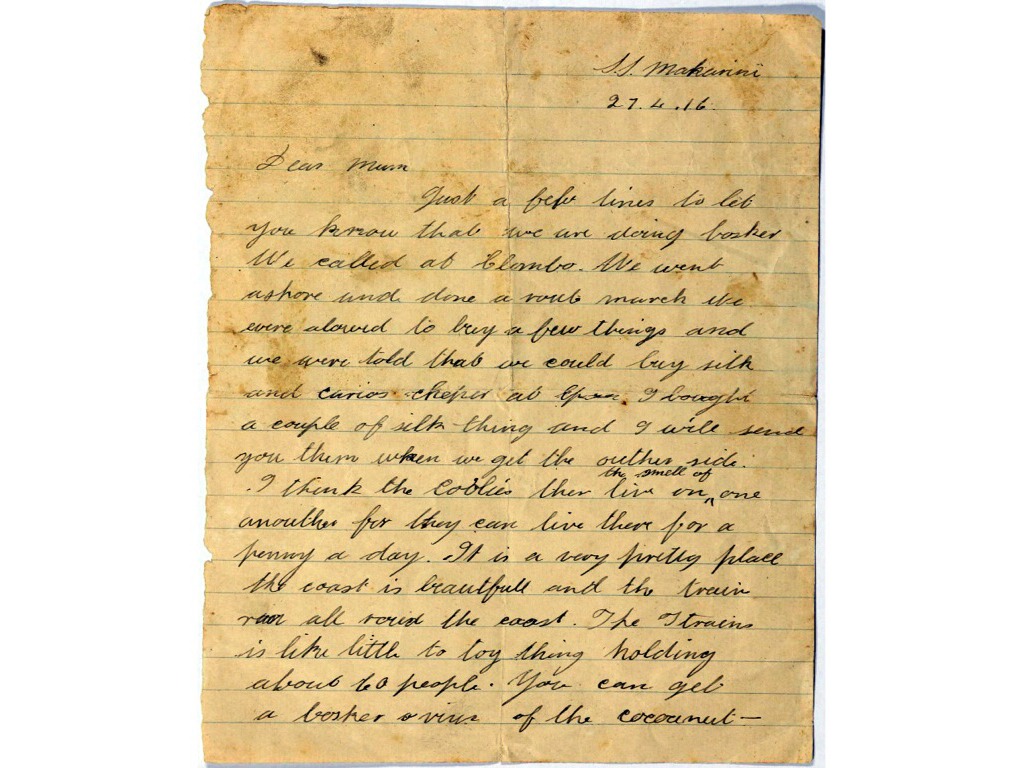 S.S. Makarini
27.4.16.
Dear Mum
Just a few lines to let
you know that we are doing bosker
We called at Clombo. We went
ashore and done a rout march We
were alowed to buy a few things and
we were told that we could buy silk
and curios cheper at I bought
a couple of silk thing and I will send
you them when we get the outher side.
the smell of
I think the coolies ther live on ^ one
anouther for they can live there for a
penny a day. It is a very pretty place
the coast is beautfull and the train
all the coast. The Trains
is like little to toy thing holding
about 60 people. You can get
a bosker of the cocoanut—